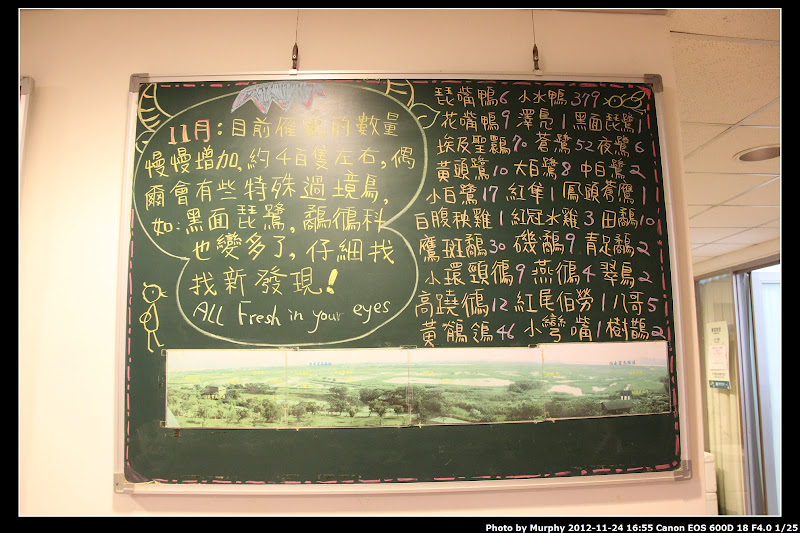 11月:目前催戰的數量
慢慢增加,約4百隻左右,偶
爾會有些特殊過境鳥,
如:黑面琵鷺,鷸鴴科
也變多了,仔細找
找新發現!
ALL Fresh in your eyes
琵嘴鴨6 小水鴨379
花嘴鴨9 澤鳧1 黑面琵鷺1
埃及聖䴉70 蒼鷺52 夜鷺6
黃頭鷺10 大白鷺8 中白鷺2
小白鷺17 紅隼1 鳳頭蒼鷹1
白腹秧雞1 紅冠水雞3 田鷸10
鷹斑鷸30 磯鷸9 青足鷸2
小環頸鴴9 燕鴴4 翠鳥2
高蹺鴴12 紅尾伯勞1 八哥5
黃鶺鴒46 小彎嘴1 樹鵲2
Photo by Murphy 2012-11-24 16:55 Canon EOS 600D 18 F4.0 1/25